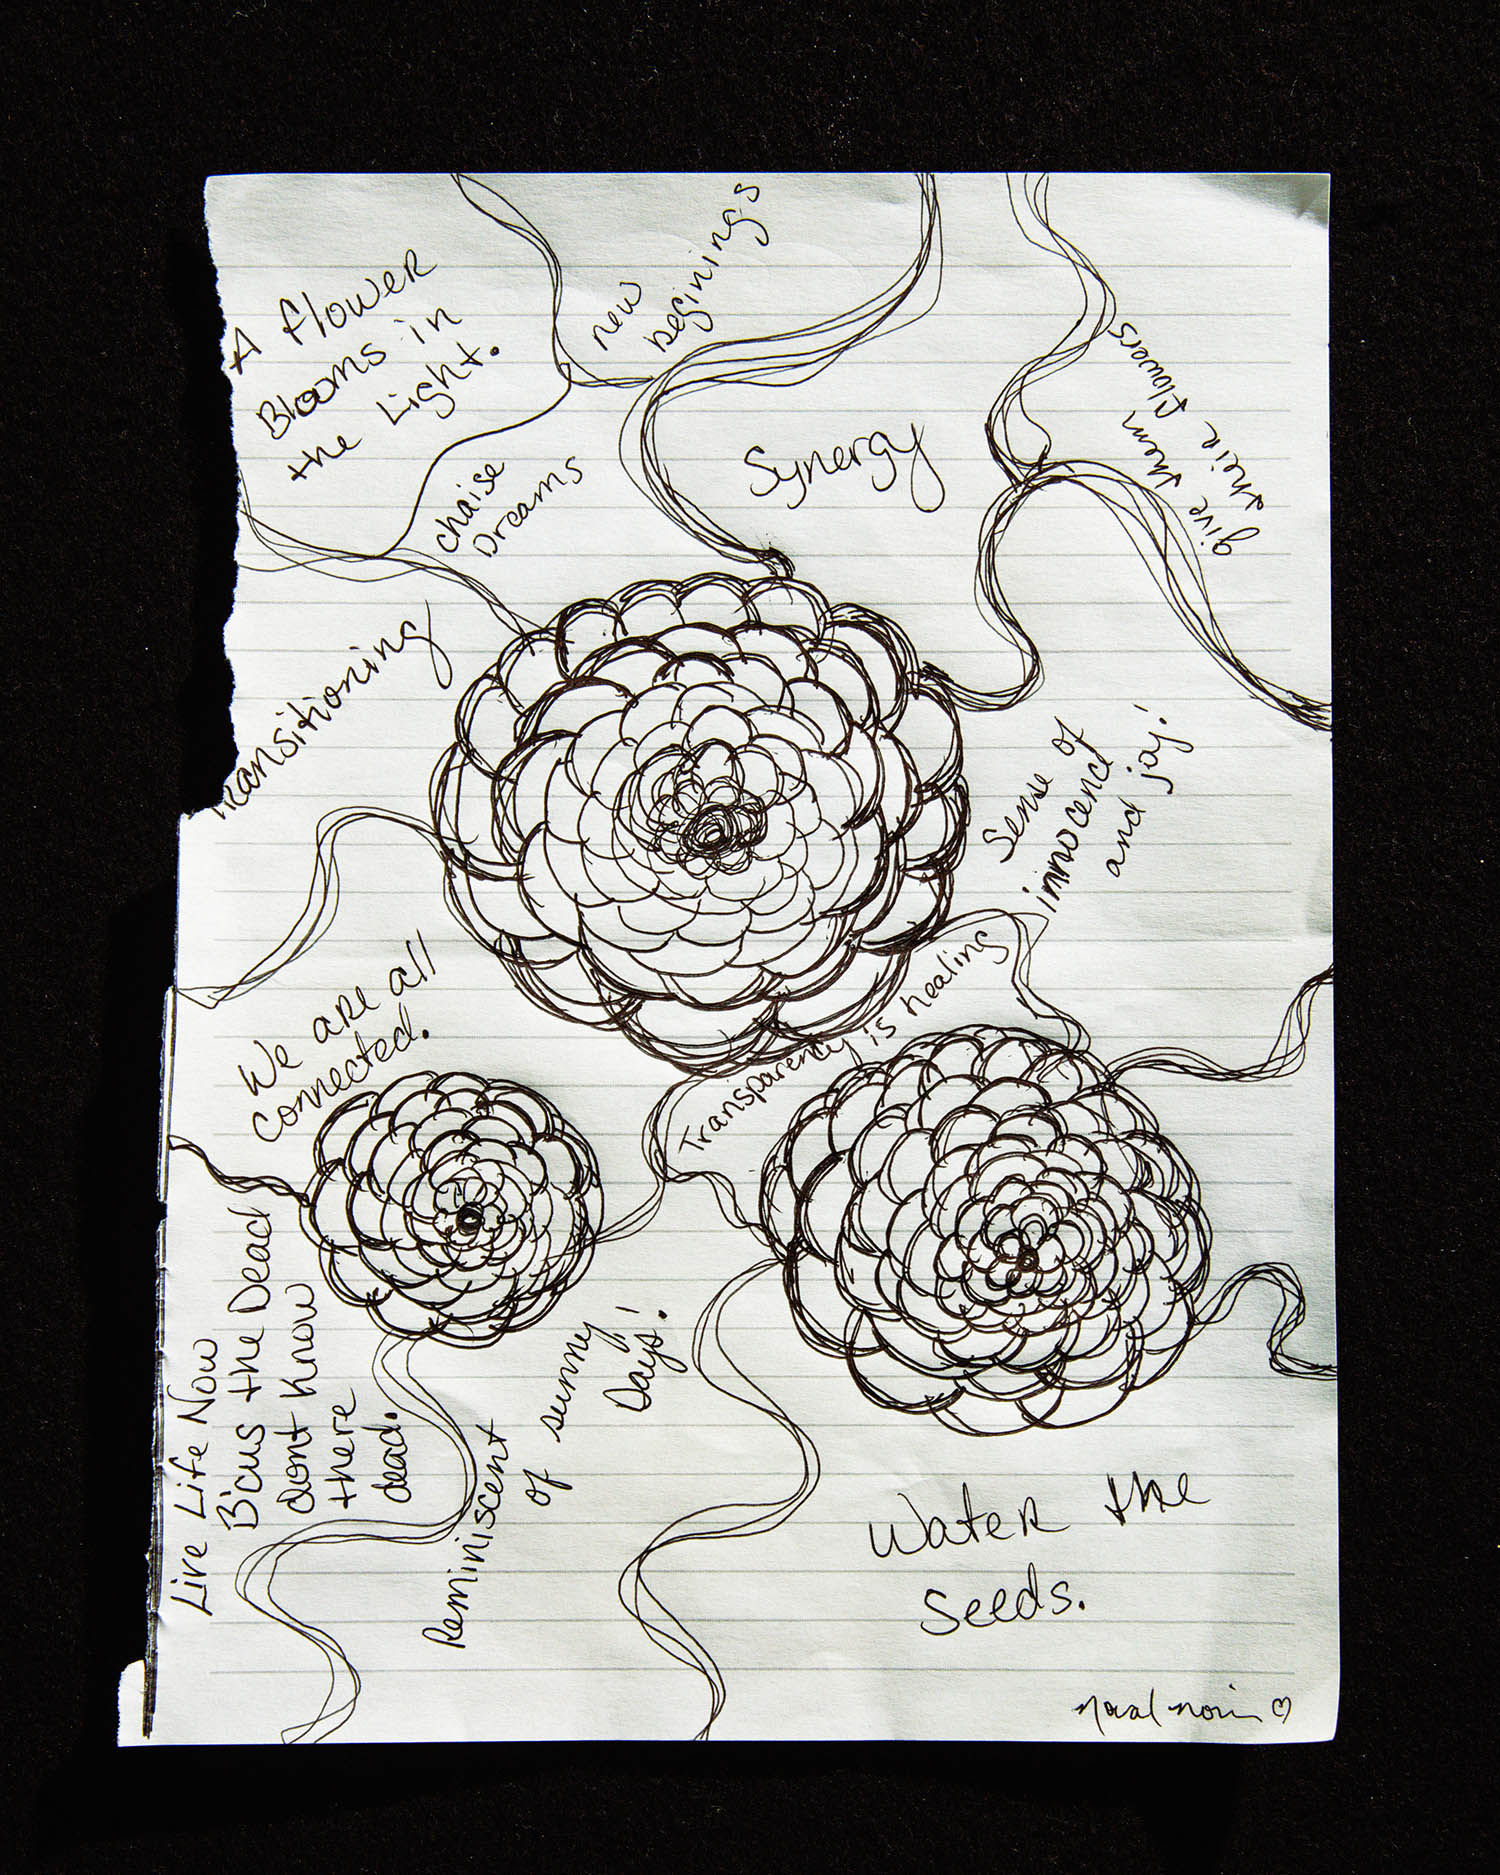 A flower
Blooms in
the Light.
new
beginings
chaise
Dreams
Synergy
give them
their flowers
Transitioning
Sense of
innocence
and joy!
We are all
connected.
Transparency is healing
Live Life Now
B'cus the Dead
dont Know
there
dead.
Reminiscent
of sunny
Days!
Water the
Seeds.